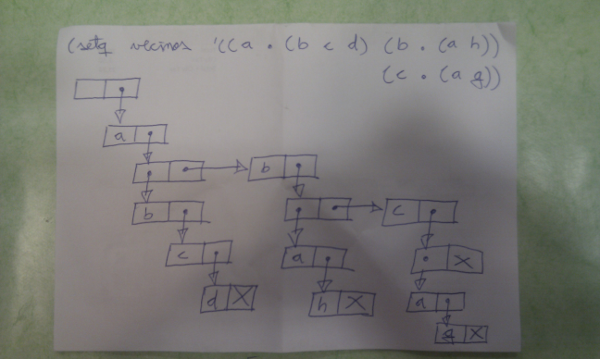 (setq vecinos '((a . (b c d) (b . (a h))
(c . (a g))
a
b
b
c
c
a
a
d
h
g